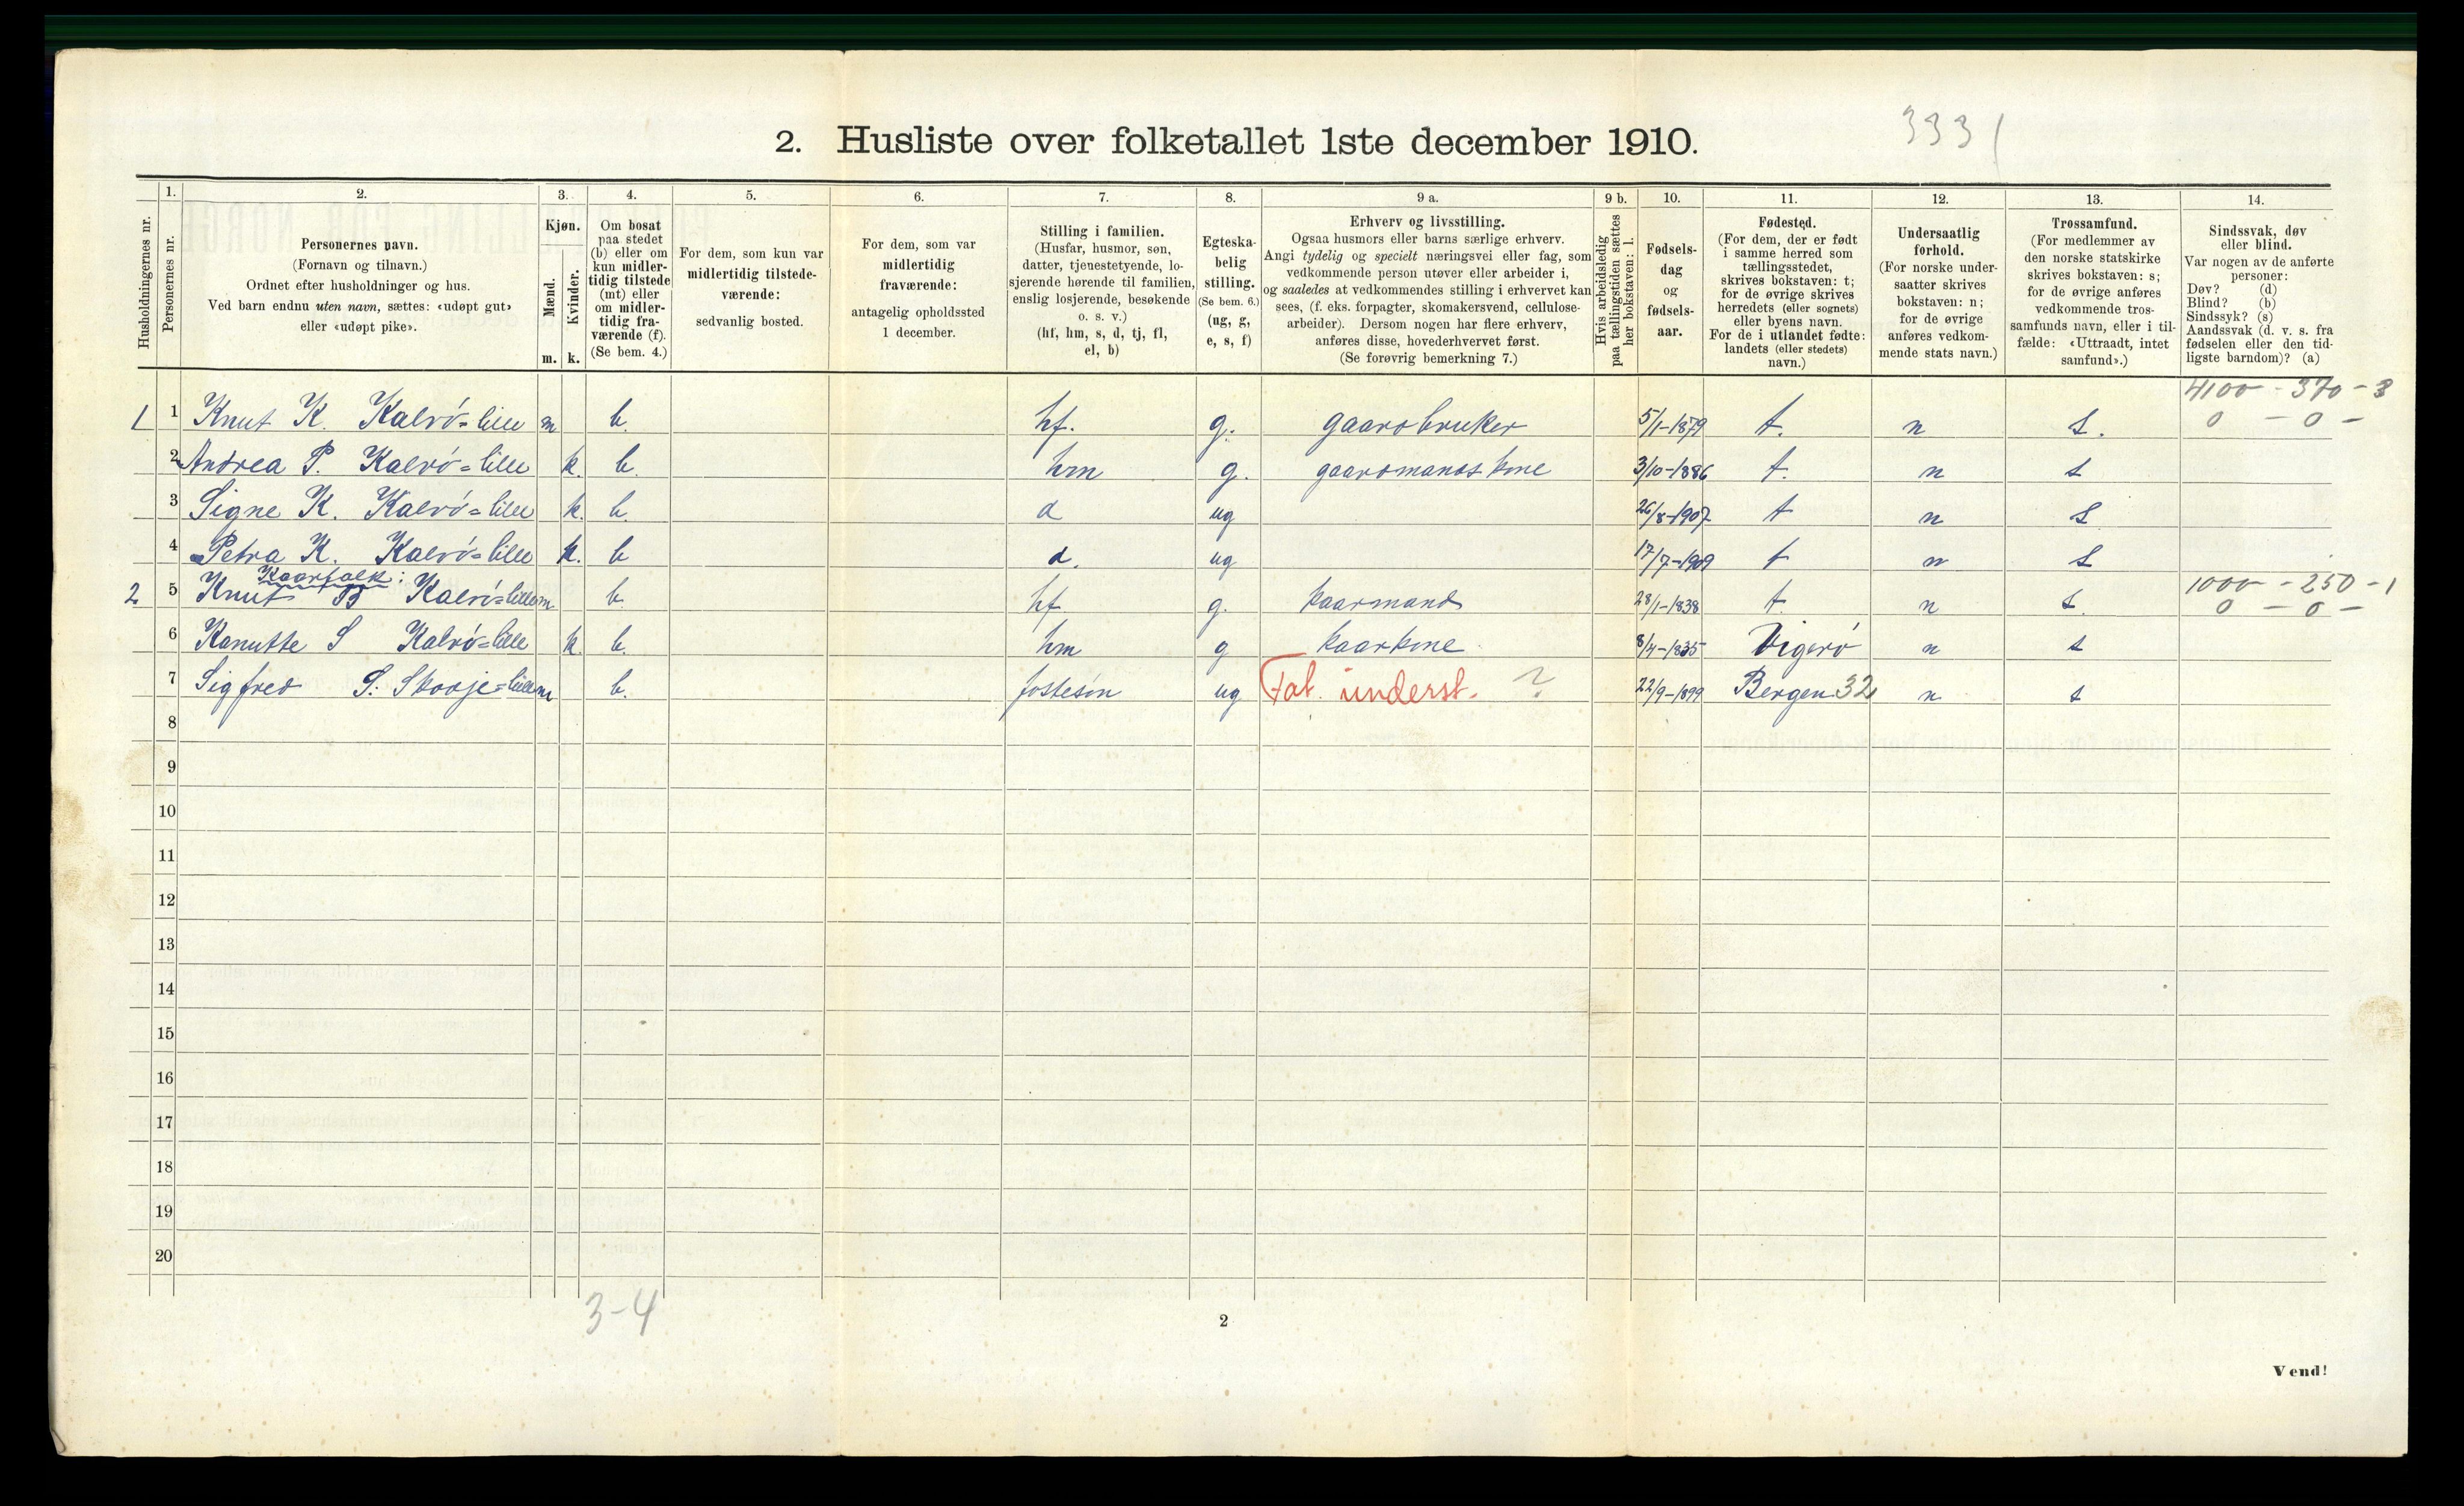 2. Husliste over folketallet 1ste december 1910.
3331
Husholdningernes nr.
1.
Personernes nr.
2.
Personernes navn.
(Fornavn og tilnavn.)
Ordnet efter husholdninger og hus.
Ved barn endnu uten navn, sættes: «udøpt gut»
eller «udøpt pike».
3.
Kjøn.
Mænd.
Kvinder.
m. k.
4.
Om bosat
paa stedet
(b) eller om
kun midler-
tidig tilstede
(mt) eller
om midler-
tidig fra-
værende (f).
(Se bem. 4.)
5.
For dem, som kun var
midlertidig tilstede-
værende:
sedvanlig bosted.
6.
For dem, som var
midlertidig
fraværende:
antagelig opholdssted
1 december.
7.
Stilling i familien.
(Husfar, husmor, søn,
datter, tjenestetyende, lo-
sjerende hørende til familien,
enslig losjerende, besøkende
o. s. v.)
(hf, hm, s, d, tj, fl,
el, b)
8.
Egteska-
belig
stilling.
(Se bem. 6.)
(ug, g,
e, s, f)
9 a.
Erhverv og livsstilling.
Ogsaa husmors eller barns særlige erhverv.
Angi tydelig og specielt næringsvei eller fag, som
vedkommende person utøver eller arbeider i,
og saaledes at vedkommendes stilling i erhvervet kan
sees, (f. eks. forpagter, skomakersvend, cellulose-
arbeider). Dersom nogen har flere erhverv,
anføres disse, hovederhvervet først.
(Se forøvrig bemerkning 7.)
9 b.
Hvis arbeidsledig
paa tællingstiden sættes
her bokstaven: l.
10.
Fødsels-
dag
og
fødsels-
aar.
11.
Fødested.
(For dem, der er født
i samme herred som
tællingsstedet,
skrives bokstaven: t;
for de øvrige skrives
herredets (eller sognets)
eller byens navn.
For de i utlandet fødte:
landets (eller stedets)
navn.)
12.
Undersaatlig
forhold.
(For norske under-
saatter skrives
bokstaven: n;
for de øvrige
anføres vedkom-
mende stats navn.)
13.
Trossamfund.
(For medlemmer av
den norske statskirke
skrives bokstaven: s;
for de øvrige anføres
vedkommende tros-
samfunds navn, eller i til-
fælde: «Uttraadt, intet
samfund».)
14.
Sindssvak, døv
eller blind.
Var nogen av de anførte
personer:
Døv? (d)
Blind? (b)
Sindssyk? (s)
Aandssvak (d. v. s. fra
fødselen eller den tid-
ligste barndom)? (a)
4100 - 370 - 3
1 1 Knut K. Kalvø=lille m b. hf. g. gaardbruker 5/1-1879 t. n s. 0 - 0 -
2 Andrea P. Kalvø=lille k. b. hm g. gaardmands kone 3/10-1886 t. n s
3 Signe K. Kalvø=lille k. b. d ug 26/8-1907 t n s
4 Petra K. Kalvø=lille k. b d. ug 17/7-1909 t n s
Kaarfolk:
1000 - 250 - 1
2 5 Knut B Kalvø=lille m b. hf g. kaarmand 28/1-1838 t. n s. 0 - 0 -
6 Kanutte S Kalvø=lille k. b. hm g kaarkone 8/4-1835 Vigerø n s
7 Sigfred S. Skodje=lille m b. fostesøn ug Fat. underst. ? 22/9-1899 Bergen 32 n s
8
9
10
11
12
13
14
15
16
17
18
19
20
3-4
2
Vend!